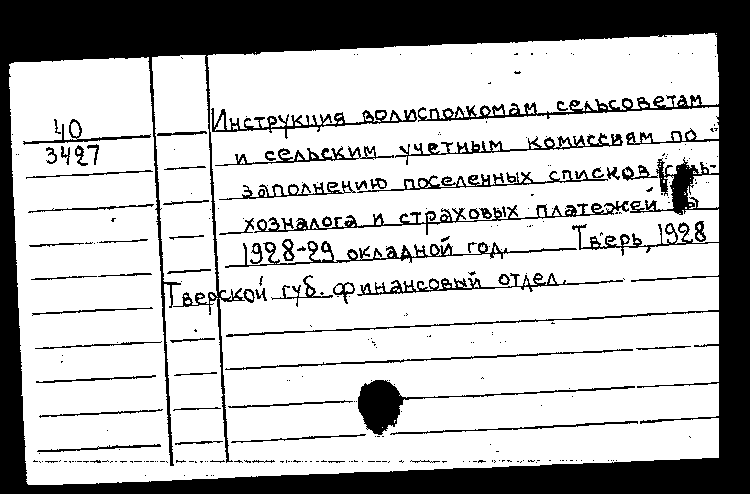 40
3427
Инструкция волисполкомам, сельсоветам
и сельским учетным комиссиям по
заполнению поселенных списков сель-
хозналога и страховых платежей
1928-29 окладной год. Тверь, 1928
Тверской губ. финансовый отдел.